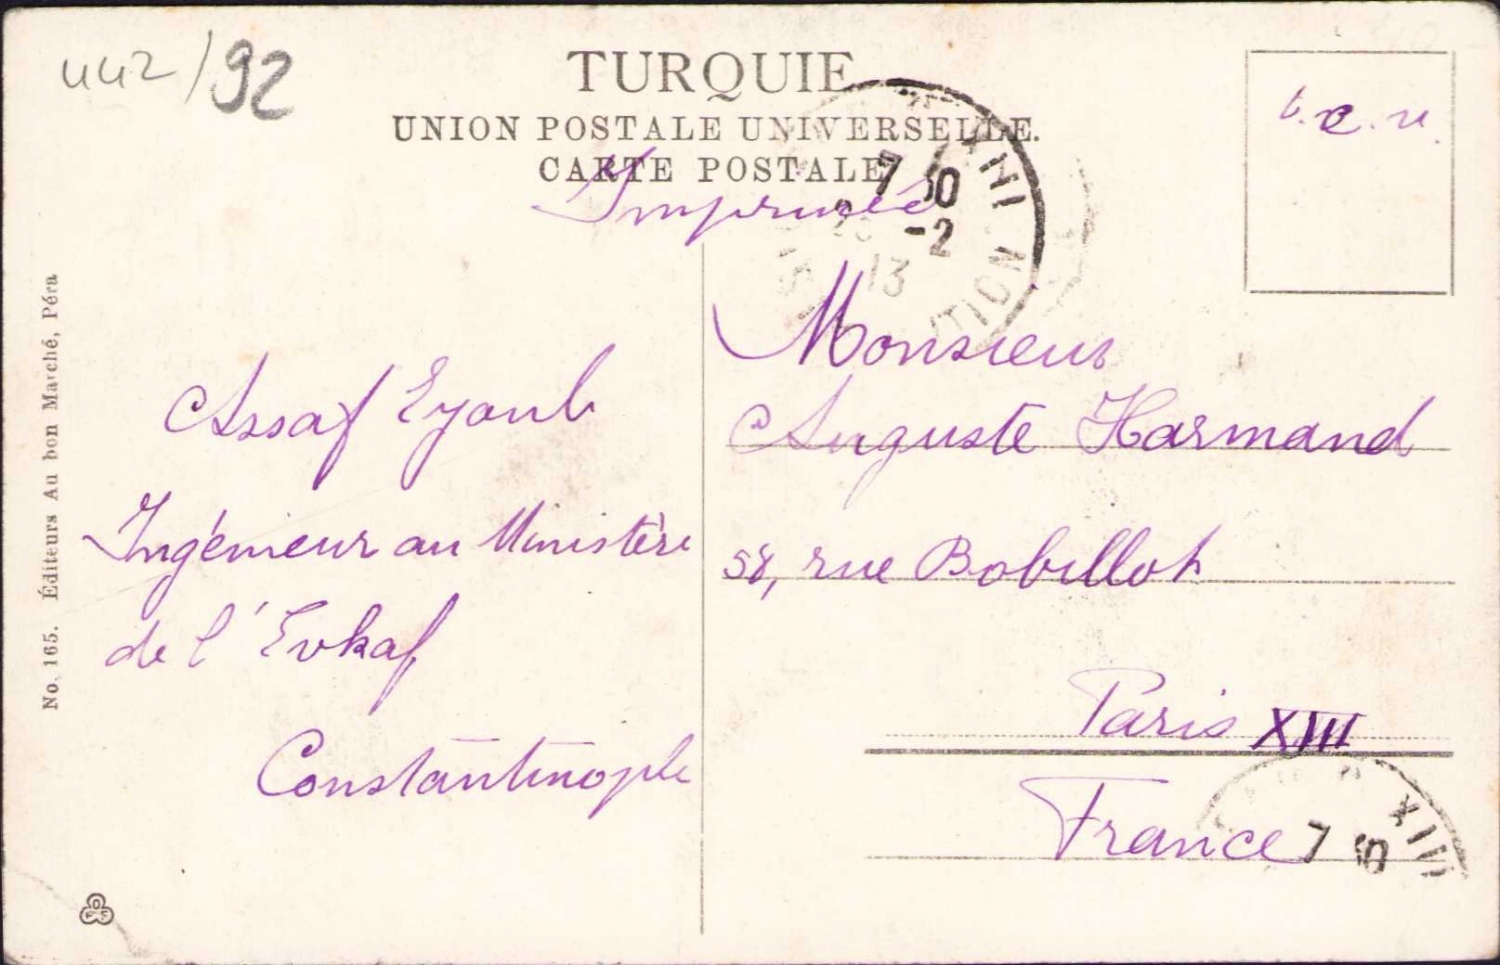 442/92
TURQUIE
UNION POSTALE UNIVERSELLE.
CARTE POSTALE
Imprimée
7 50
-2
13
TION
Monsieur
Auguste Harmand
58, rue Bobillot
Paris XIII
France
XIII
7 50
Assaf Eyoub
Ingénieur au Ministère
de l'Evkaf
Constantinople
No. 165. Éditeurs Au bon Marché, Péra